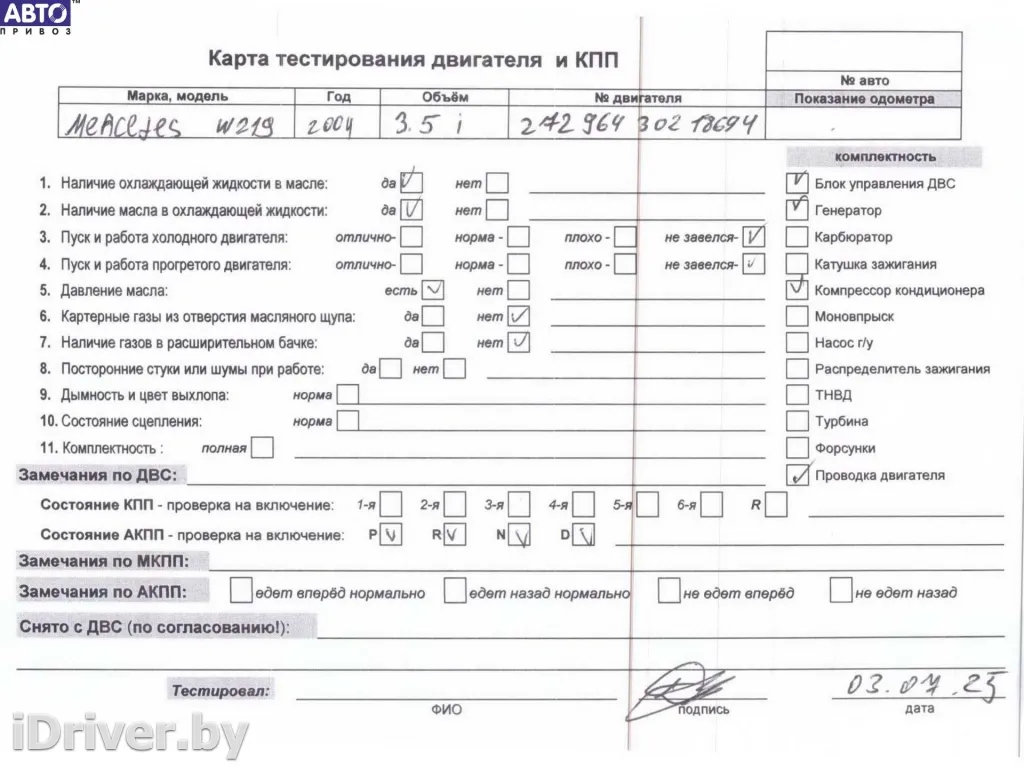 АВТО™
ПРИВОЗ
Карта тестирования двигателя и КПП
№ авто
Марка, модель Год Объём № двигателя Показание одометра
Mercedes W219 2004 3.5 i 272 964 302 18694
комплектность
1. Наличие охлаждающей жидкости в масле: да нет Блок управления ДВС
2. Наличие масла в охлаждающей жидкости: да нет Генератор
3. Пуск и работа холодного двигателя: отлично- норма - плохо - не завелся- Карбюратор
4. Пуск и работа прогретого двигателя: отлично- норма - плохо - не завелся- Катушка зажигания
5. Давление масла: есть нет Компрессор кондиционера
6. Картерные газы из отверстия масляного щупа: да нет Моновпрыск
7. Наличие газов в расширительном бачке: да нет Насос г/у
8. Посторонние стуки или шумы при работе: да нет Распределитель зажигания
9. Дымность и цвет выхлопа: норма ТНВД
10. Состояние сцепления: норма Турбина
11. Комплектность : полная Форсунки
Замечания по ДВС: Проводка двигателя
Состояние КПП - проверка на включение: 1-я 2-я 3-я 4-я 5-я 6-я R
Состояние АКПП - проверка на включение: P R N D
Замечания по МКПП:
Замечания по АКПП: едет вперёд нормально едет назад нормально не едет вперёд не едет назад
Снято с ДВС (по согласованию!):
Тестировал: 03.07.25
ФИО подпись дата
iDriver.by